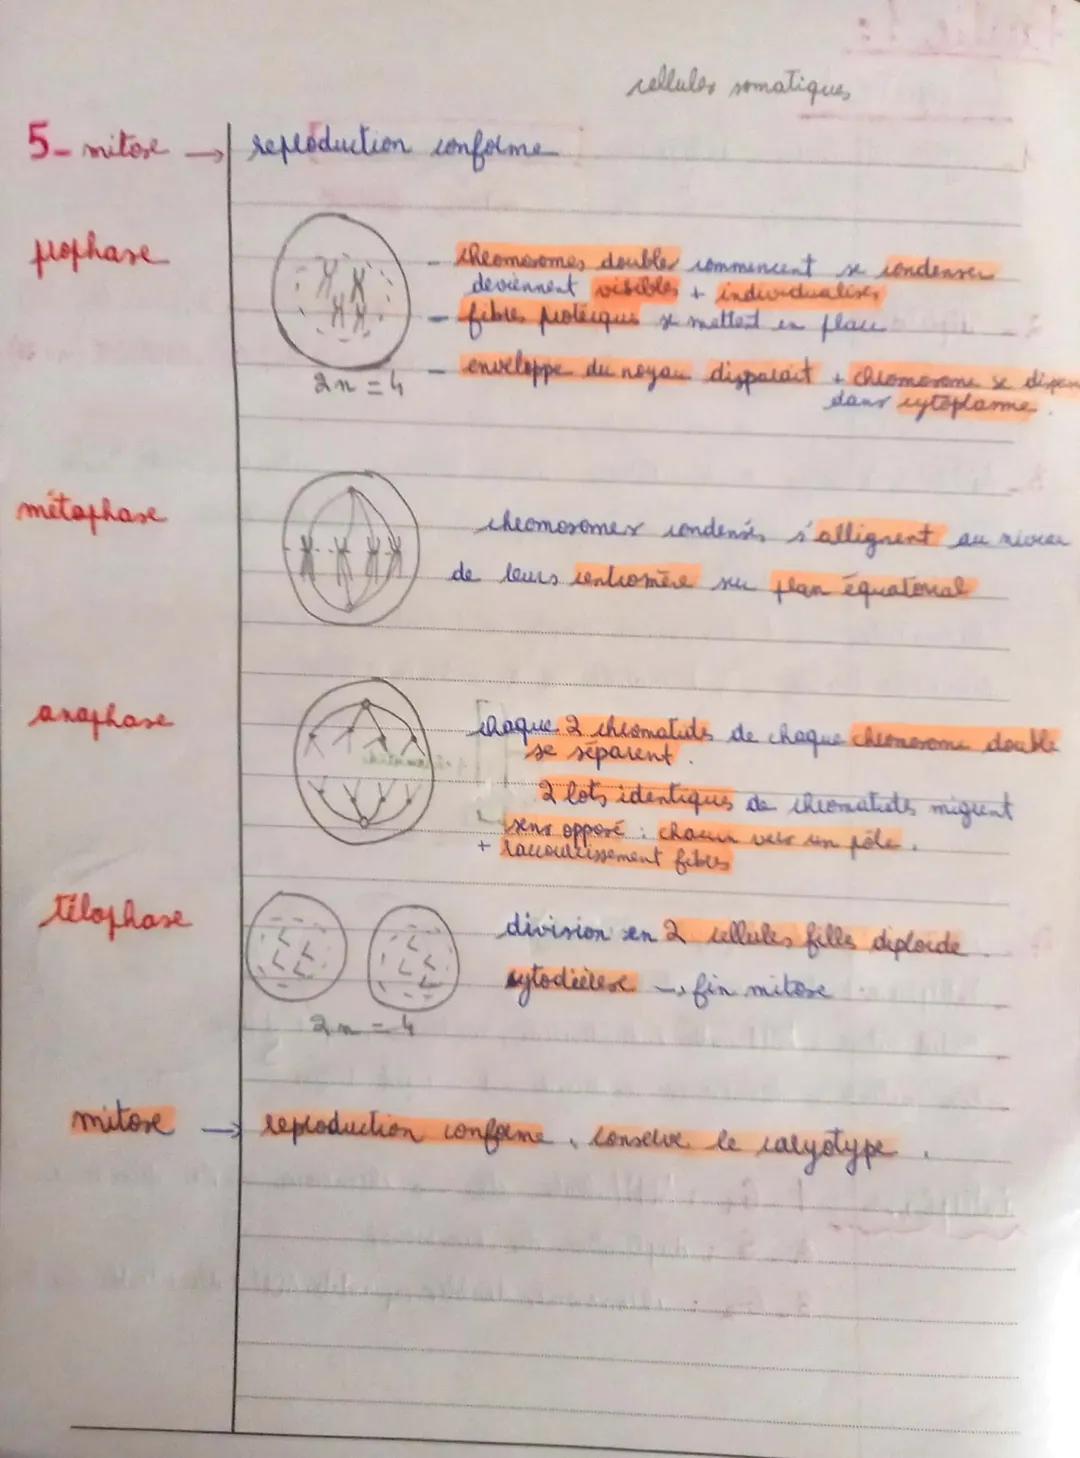 cellules somatiques
5- mitose → reproduction conforme
prophase
- chromosomes doubles commencent se condenser
deviennent visibles + individualisés
- fibres protéiques se mettent en place
- enveloppe du noyau disparait + chromosome se dispers
dans cytoplasme.
2n = 4
métaphase
chromosomes condensés s'allignent au niveau
de leurs centromère sur plan équatorial
anaphase
chaque 2 chromatids de chaque chromosome double
se séparent.
2 lots identiques de chromatids migrent
sens opposé : chacun vers un pôle.
+ raccourcissement fibres
télophase
division en 2 cellules filles diploide
cytodiérèse → fin mitose
2n = 4
mitose → reproduction conforme, conserve le caryotype.